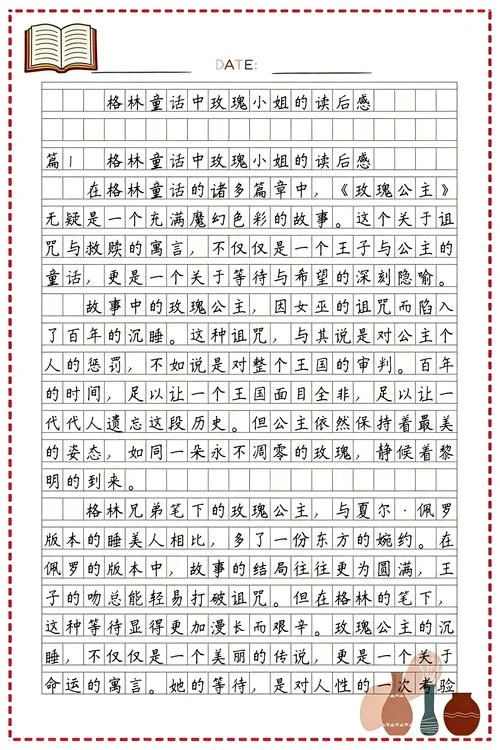 DATE:
格林童话中玫瑰小姐的读后感
篇1 格林童话中玫瑰小姐的读后感
在格林童话的诸多篇章中，《玫瑰公主》
无疑是一个充满魔幻色彩的故事。这个关于诅
咒与救赎的寓言，不仅仅是一个王子与公主的
童话，更是一个关于等待与希望的深刻隐喻。
故事中的玫瑰公主，因女巫的诅咒而陷入
了百年的沉睡。这种诅咒，与其说是对公主个
人的惩罚，不如说是对整个王国的审判。百年
的时间，足以让一个王国面目全非，足以让一
代代人遗忘这段历史。但公主依然保持着最美
的姿态，如同一朵永不凋零的玫瑰，静候着黎
明的到来。
格林兄弟笔下的玫瑰公主，与夏尔·佩罗
版本的睡美人相比，多了一份东方的婉约。在
佩罗的版本中，故事的结局往往更为圆满，王
子的吻总能轻易打破诅咒。但在格林的笔下，
这种等待显得更加漫长而艰辛。玫瑰公主的沉
睡，不仅仅是一个美丽的传说，更是一个关于
命运的寓言。她的等待，是对人性的一次考验